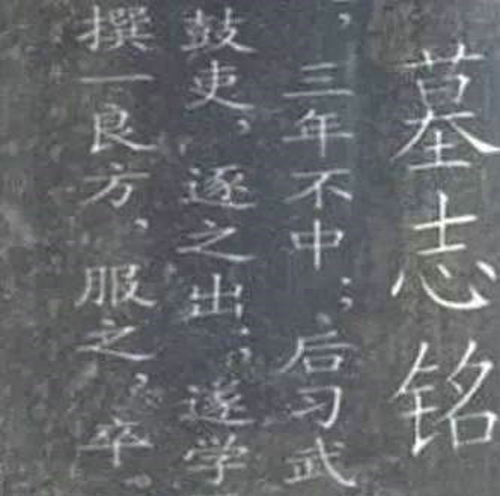 墓志铭
，三年不中；后习武
鼓吏，逐之出；遂学
撰一良方，服之，卒。